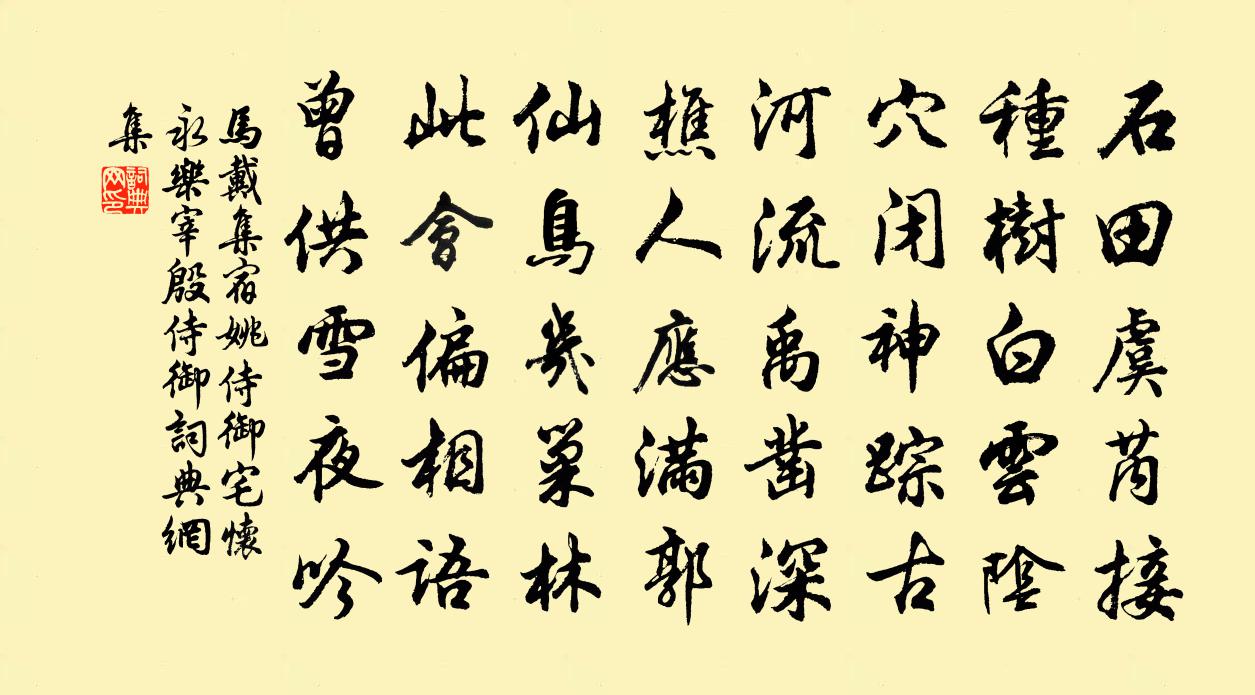 石田虞芮接
種樹白雲陰
穴闭神踪古
河流禹凿深
樵人應满郭
仙鳥幾巢林
此會偏相語
曾供雪夜吟
馬戴集宿姚侍御宅懷
永樂宰殷侍御詞典網
集
詞典
网印